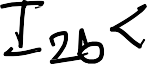 I_{2b} <